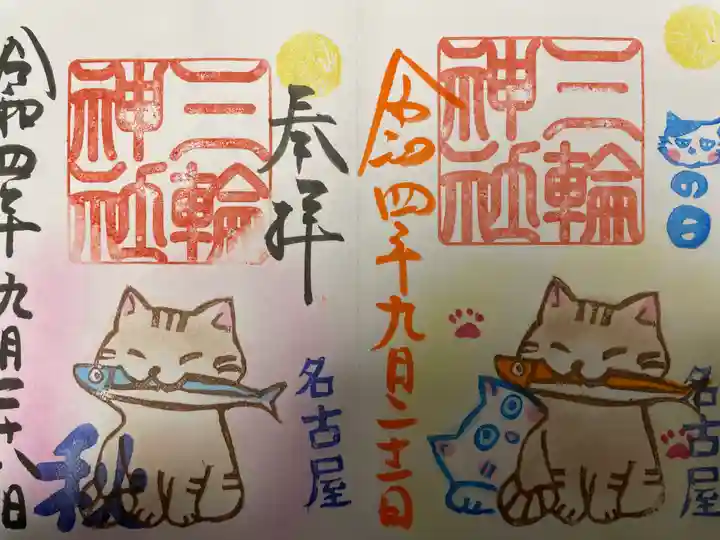 の日
三輪神社
名古屋
令和四年九月二十二日
奉拝
三輪神社
名古屋
秋
令和四年九月二十八日